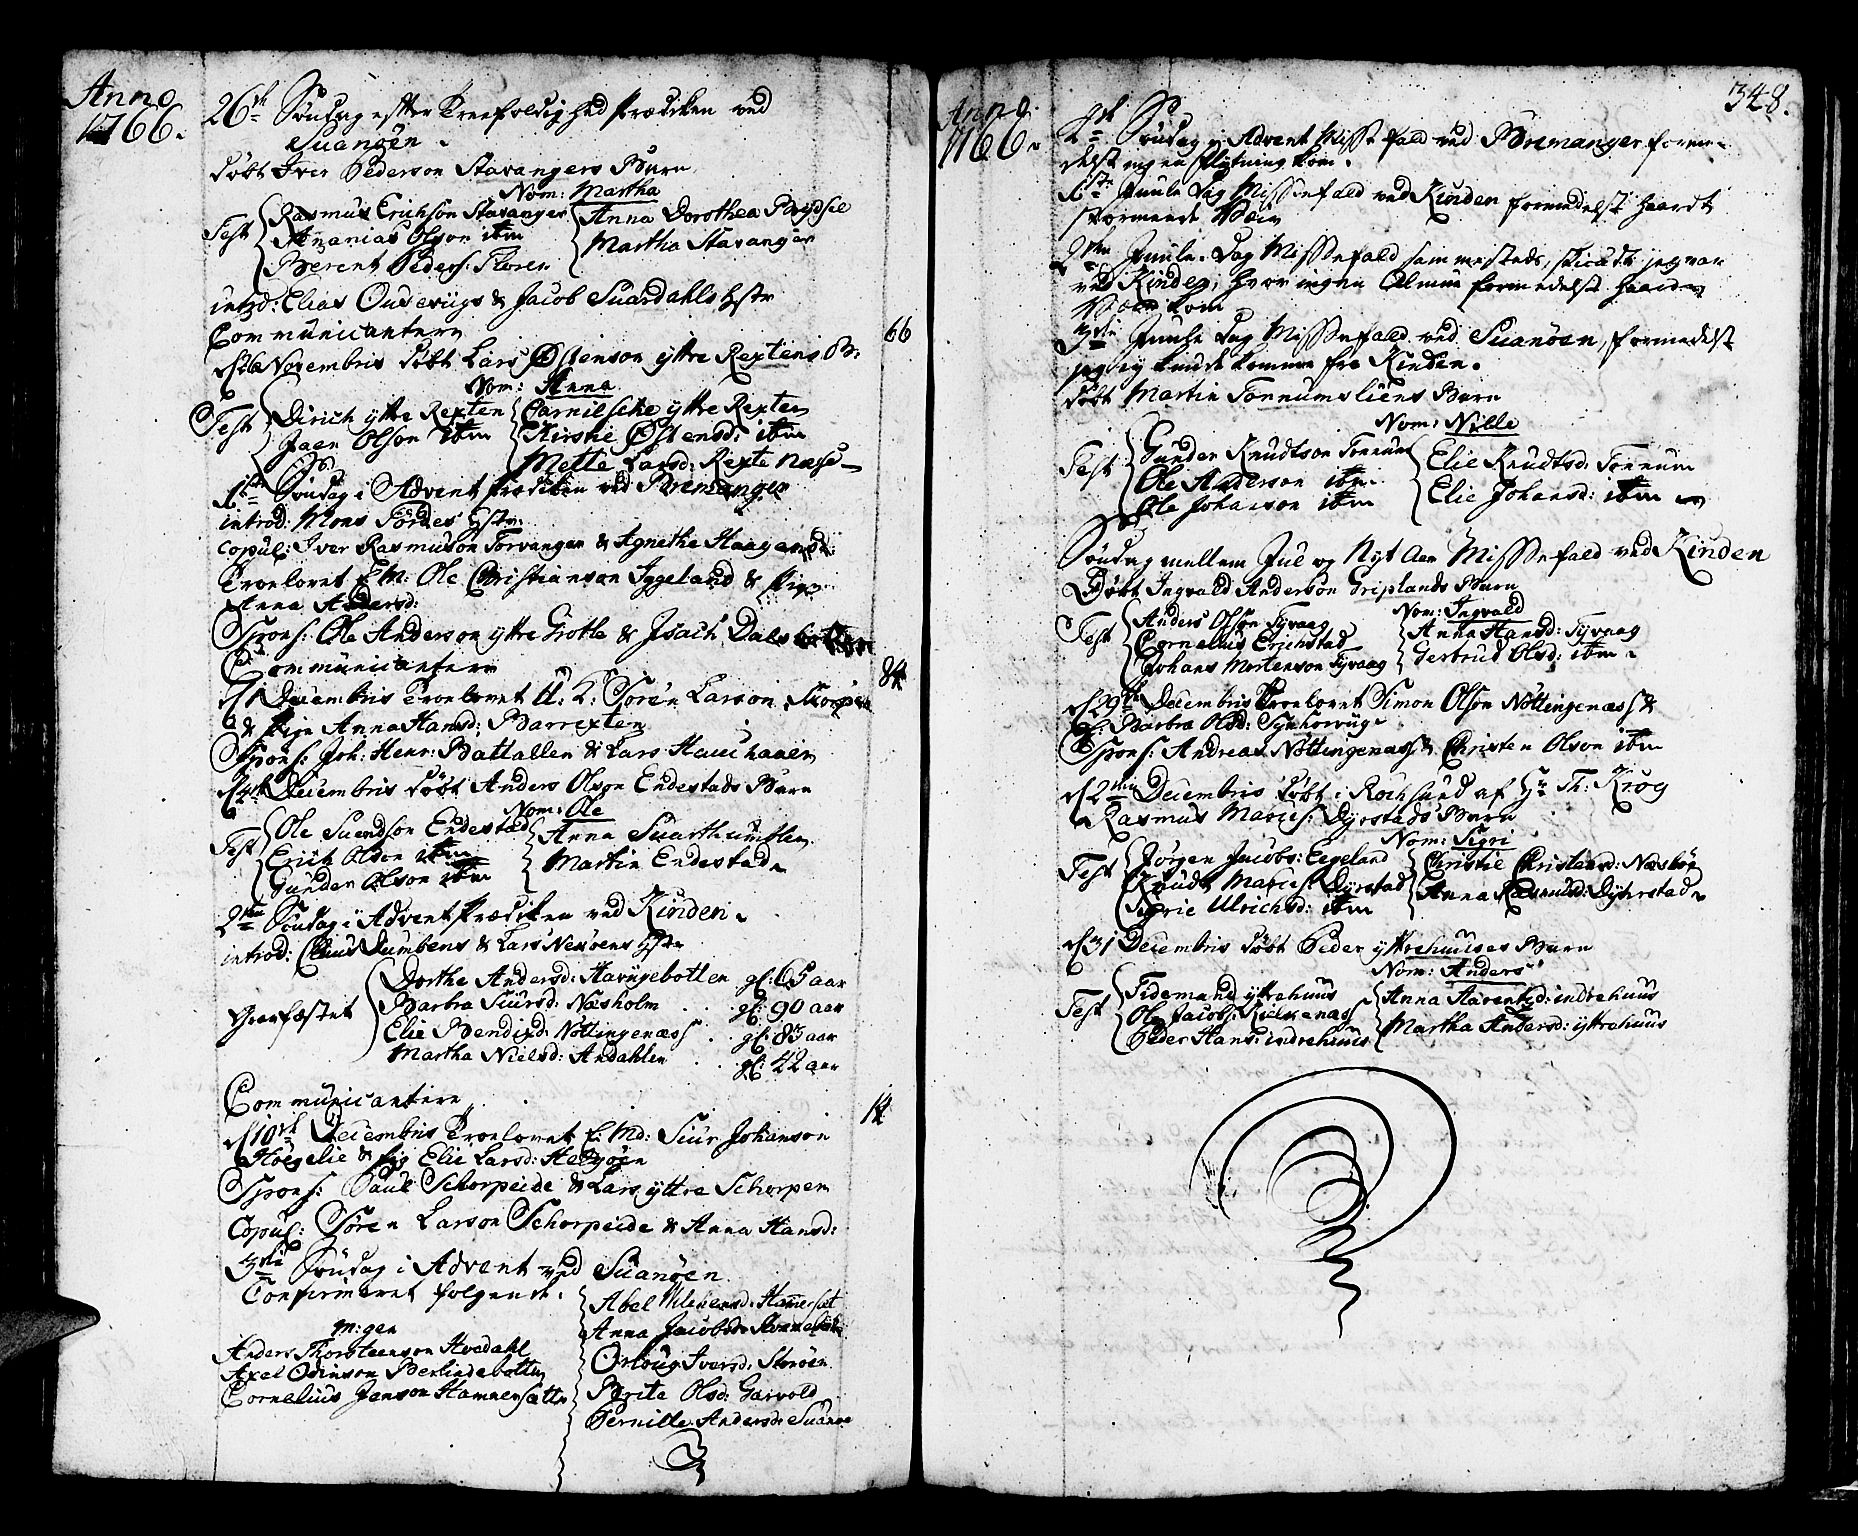 Anno
1766.
26de Söndag effter Treefoldighed Prædiken ved
Suanøen.
døbt Iver Pederson Stavangers Barn
Nom: Martha
Test Rasmus Erichson Stavanger
Ananias Olson itm
Berent Peders: Floren
Anna Dorothea Brydsel
Martha Stavanger
introd: Elias Ousevügs & Jacob Suardahls Hstr
Communicantere 66
Novembris døbt Lars Østenson yttre Rextens B:
Nom: Anna
Test Dirich yttre Rexten
Jaen Olson itm
Carnilske yttre Rexten
Kirstie Østensd: itm
Mette Larsd: Rexte Næse
1ste Söndag i Advent Prædiken ved Bremanger
introd: Mons Førdes Hstr:
copul: Iver Rasmuson Torvanger & Agnethe Haagensd:
Troelovet E: M: Ole Christianson Iggeland & Pige
Anna Andersd:
Spons: Ole Anderson yttre Grotle & Isach Dalsbotten
Communicantere 84
d 1 Decembris Troelovet U: K: Søren Larson Skorpen
& Pige Anna Hansd: Barrexten
Spons: Joh: Henr: Battallen & Lars Hauchanen
d 4de Decembris døbt Anders Olson Endestads Barn
Nom: Ole
Test Ole Suendson Endestad
Erich Olson itm
Gunder Olson itm
Anna Suarthumblen
Martin Endestad
2den Söndag i Advent Prædiken ved Kinden.
introd: Claus Dumbens & Lars Nesøens Hstr
Jordfæstet Dorthe Andersd: Havygebotten gl: 65 aar
Barbra Siursd: Næsholm gl: 90 aar
Elie Bendixd: Nøttingenæss gl: 83 aar
Martha Nielsd: Andahlen gl: 42 aar
Communicantere 14
d 10de Decembris Troelovet E: Md: Siur Johanson
Høegelie & Pig Elie Larsd:
Spons: Paul Schorpeide & Lars yttre Schorpen
Copul: Søren Larson Schorpeide & Anna Hansd:
3die Söndag i Advent ved Suanøen
Confirmeret følgende.
Anders Thorsteenson Hvedahl
Axel Odinson Berlindebotten
Cornelius Janson Hammersætte
Abel Mickelsd: Hammersæt
Anna Jacobsd:
Ortoug Iversd: Storøen
Brite Olsd: Garvold
Pernille Andersd: Suanøe
Anno
1766.
348.
4de Söndag i Advent Missefald ved Bremanger forme-
delst ingen flytning kom.
1ste Juule Dag Missefald ved Kinden formedelst haardt
stormende Veir
2den Juule-Dag Missefald sammesteds, skiønt jeg var
ved Kinden, hvor ingen Almue formedelst haarde
Veir kom
3die Juule Dag Missefald ved Suanøen, formedelst
jeg ej kunde komme fra Kinden.
døbt Martin Tonnumsliens Barn
Nom: Nille
Test Gunder Knudtson Tonnum
Ole Anderson itm
Ole Johanson itm
Elie Knudtsd: Tonnum
Elie Johansd: itm
Söndag mellem Jul og Nyt Aar Missefald ved Kinden
Døbt Ingvald Anderson Griplands Barn
Nom: Ingvald
Test Anders Olson Tyvaag
Cornelius Erichstad
Johans Mortenson Tyvaag
Anna Hansd: Tyvaag
Gertrud Olsd: itm.
d 29de Decembris Troelovet Simon Olson Nøttingenæss &
P: Barbra Olsd:
Spons: Andreas Nøttingenæss & Christen Olson itm
d 2den Decembris døbt i Rochsund af Hr Th: Krog
Rasmus Dyrstads Barn
Nom: Sigri
Test Jørgen Jacobs: Eegeland
Knudt Dyrstad
Sigrie Ulrichsd: itm
Christie Christensd: Næsbøe
Anna Rasmusd: Dyhrstad
d 31 Decembris døbt Peder yttrehuuses Barn
Nom: Anders
Test Tidemand yttrehuus
Ole Jacobs:
Peder Hans: indrehuus
Anna Aarentsd: indrehuus
Martha Andersd: yttrehuus